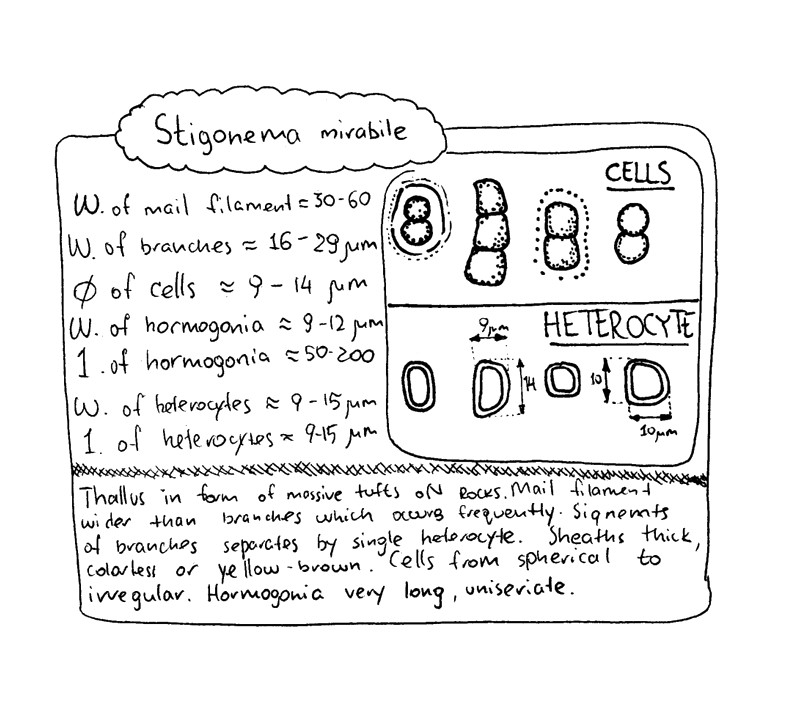 Stigonema mirabile
W. of mail filament = 30-60
W. of branches ≈ 16-29 μm
Ø of cells ≈ 9-14 μm
W. of hormogonia ≈ 9-12 μm
1. of hormogonia ≈ 50-200
W. of heterocytes ≈ 9-15 μm
1. of heterocytes ≈ 9-15 μm
CELLS
HETEROCYTE
9μm
14
10
10μm
Thallus in form of massive tufts oN Rocks. Mail filament
wider than branches which occurs frequently. Signemts
of branches separates by single heterocyte. Sheaths thick,
colorless or yellow-brown. Cells from spherical to
irregular. Hormogonia very long, uniseriate.